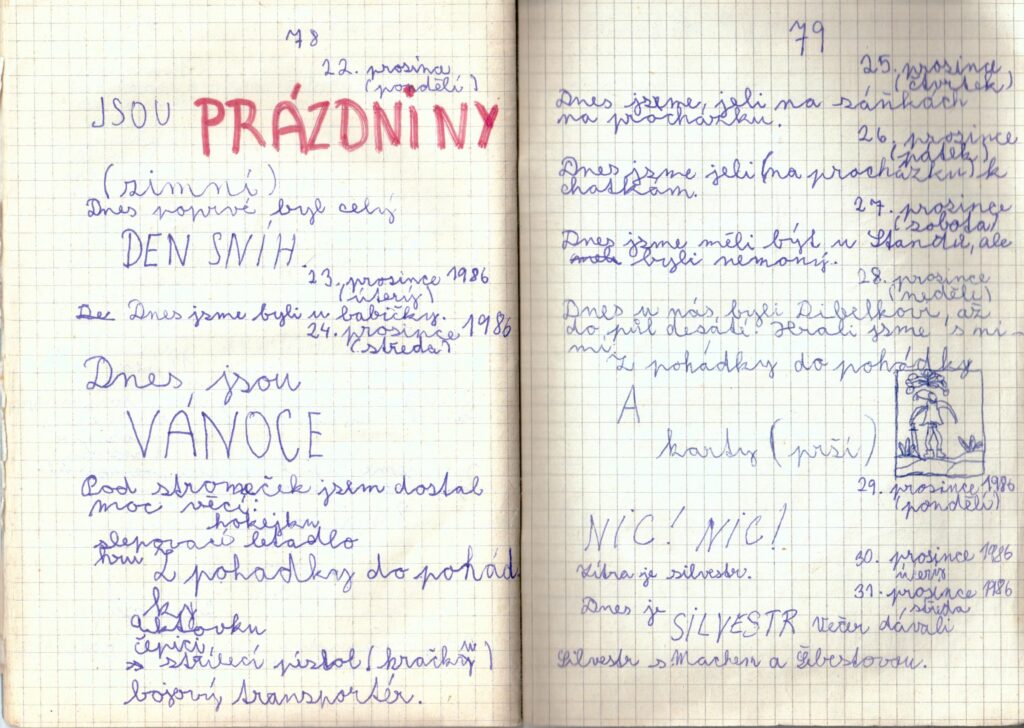 78
22. prosince
(pondělí)
JSOU PRÁZDNINY
(zimní)
Dnes poprvé byl celý
DEN SNÍH.
23. prosince 1986
(úterý)
De Dnes jsme byli u babičky.
24. prosince 1986
(středa)
Dnes jsou
VÁNOCE
Pod stromeček jsem dostal
moc věcí:
hokejku
slepovací letadlo
hru Z pohadky do pohád
ky
aktovku
čepici,
s střílecí pistol (kračky
bojový transportér.
79
25. prosince
(čtvrtek)
Dnes jseme, jeli na sáňkách
na procházku.
26. prosince
(pátek)
Dnes jsme jeli (na procházku) k
chatkám.
27. prosince
(sobota)
Dnes jsme měli být u Standů, ale
měli byli nemoný.
28. prosince
(neděle)
Dnes u nás byli Dibelkovi, až
do půl desáti. Hráli jsme s ni-
mi:
Z pohádky do pohádky
A
karty (prší)
29. prosince 1986
(pondělí)
NIC! NIC!
30. prosince 1986
úterý
Zítra je silvestr.
31. prosince 1986
středa
Dnes je
SILVESTR Večer dávali
Silvestr s Machem a Šbestovou.